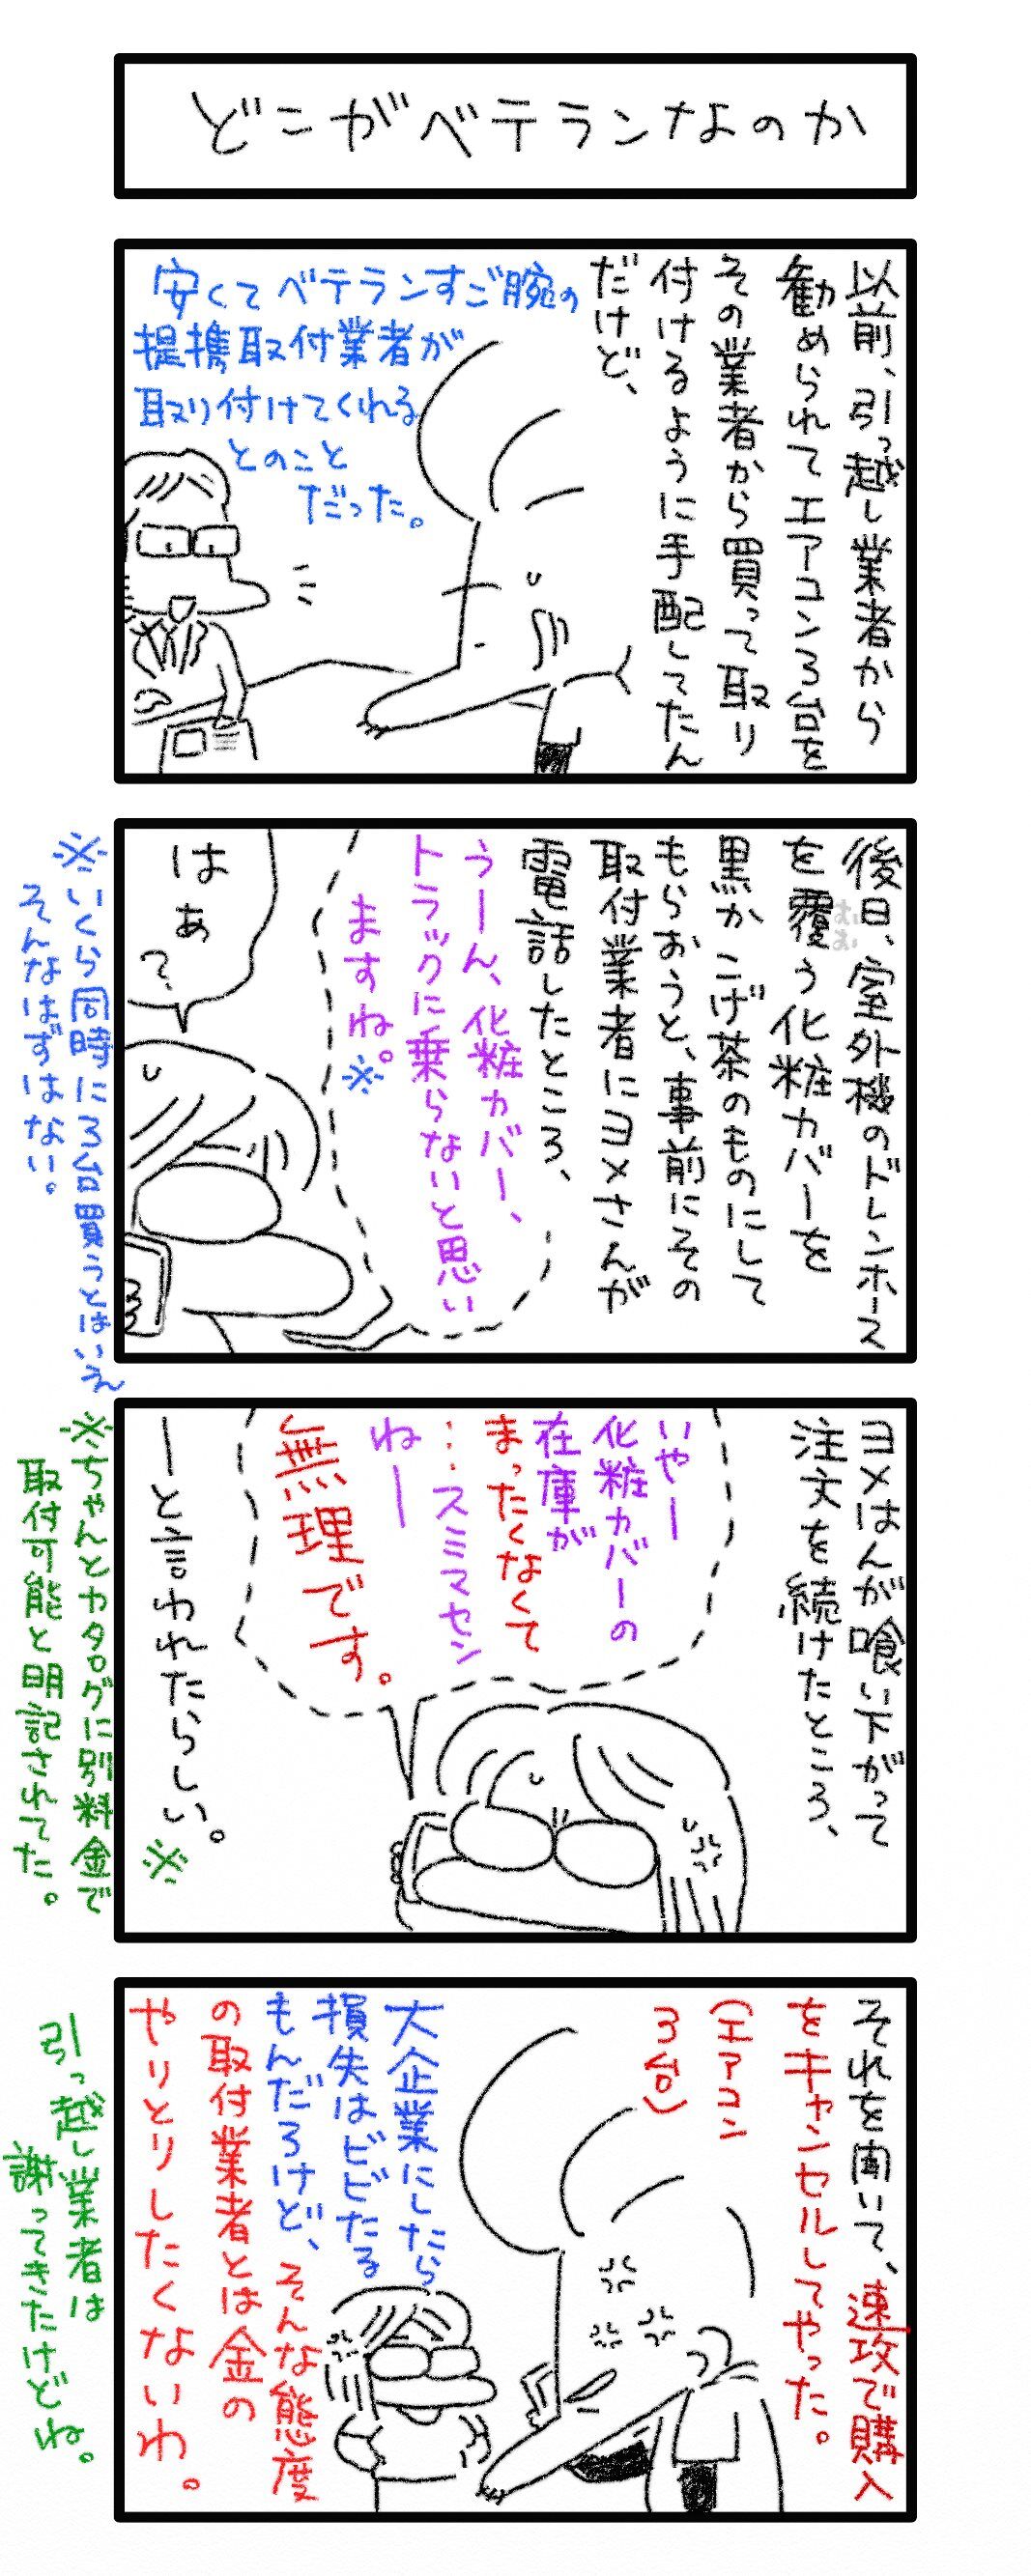 どこがベテランなのか
以前、引っ越し業者から
勧められてエアコン3台を
その業者から買って取り
付けるように手配してたん
だけど、
安くてベテランすご腕の
提携取付業者が
取り付けてくれる
とのこと
だった。
後日、室外機のドレンホース
を覆う化粧カバーを
黒かこげ茶のものにして
もらおうと、事前にその
取付業者にヨメさんが
電話したところ、
うーん、化粧カバー、
トラックに乗らないと思い
ますね。※
はぁ?
※いくら同時に3台買うとはいえ
そんなはずはない。
ヨメはんが喰い下がって
注文を続けたところ、
いやー
化粧カバーの
在庫が
まったくなくて
…スミマセン
ねー
無理です。
ーと言われたらしい。※
※ちゃんとカタログに別料金で
取付可能と明記されてた。
それを聞いて、速攻で購入
をキャンセルしてやった。
(エアコン
3台)
大企業にしたら
損失はビビたる
もんだろけど、そんな態度
の取付業者とは金の
やりとりしたくないわ。
引っ越し業者は
謝ってきたけどね。